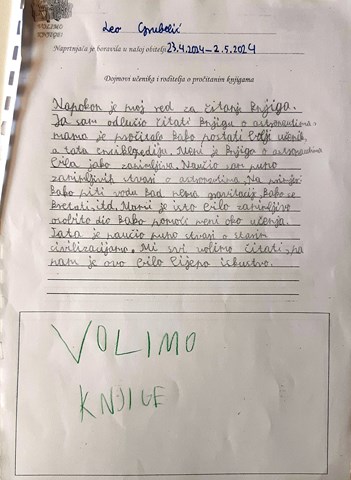 VOLIMO
KNJIGE
Leo
Naprtnjača je boravila u našoj obitelji 23.4.2024 – 2.5.2024
Dojmovi učenika i roditelja o pročitanim knjigama
Napokon je moj red za čitanje knjiga.
Ja sam odlučio čitati knjigu o astronautima,
mama je pročitala kako postati bolji učenik,
a tata enciklopediju. Meni je knjiga o astronautima
bila jako zanimljiva. Naučio sam puno
zanimljivih stvari o astronautima. Na primjer
kako piti vodu kad nema gravitacije, kako se
kretati, itd. Mami je isto bilo zanimljivo
osobito dio kako pomoći meni oko učenja.
Tata je naučio puno stvari o starim
civilizacijama. Mi svi volimo čitati, pa
nam je ovo bilo lijepo iskustvo.
VOLIMO
KNJIGE